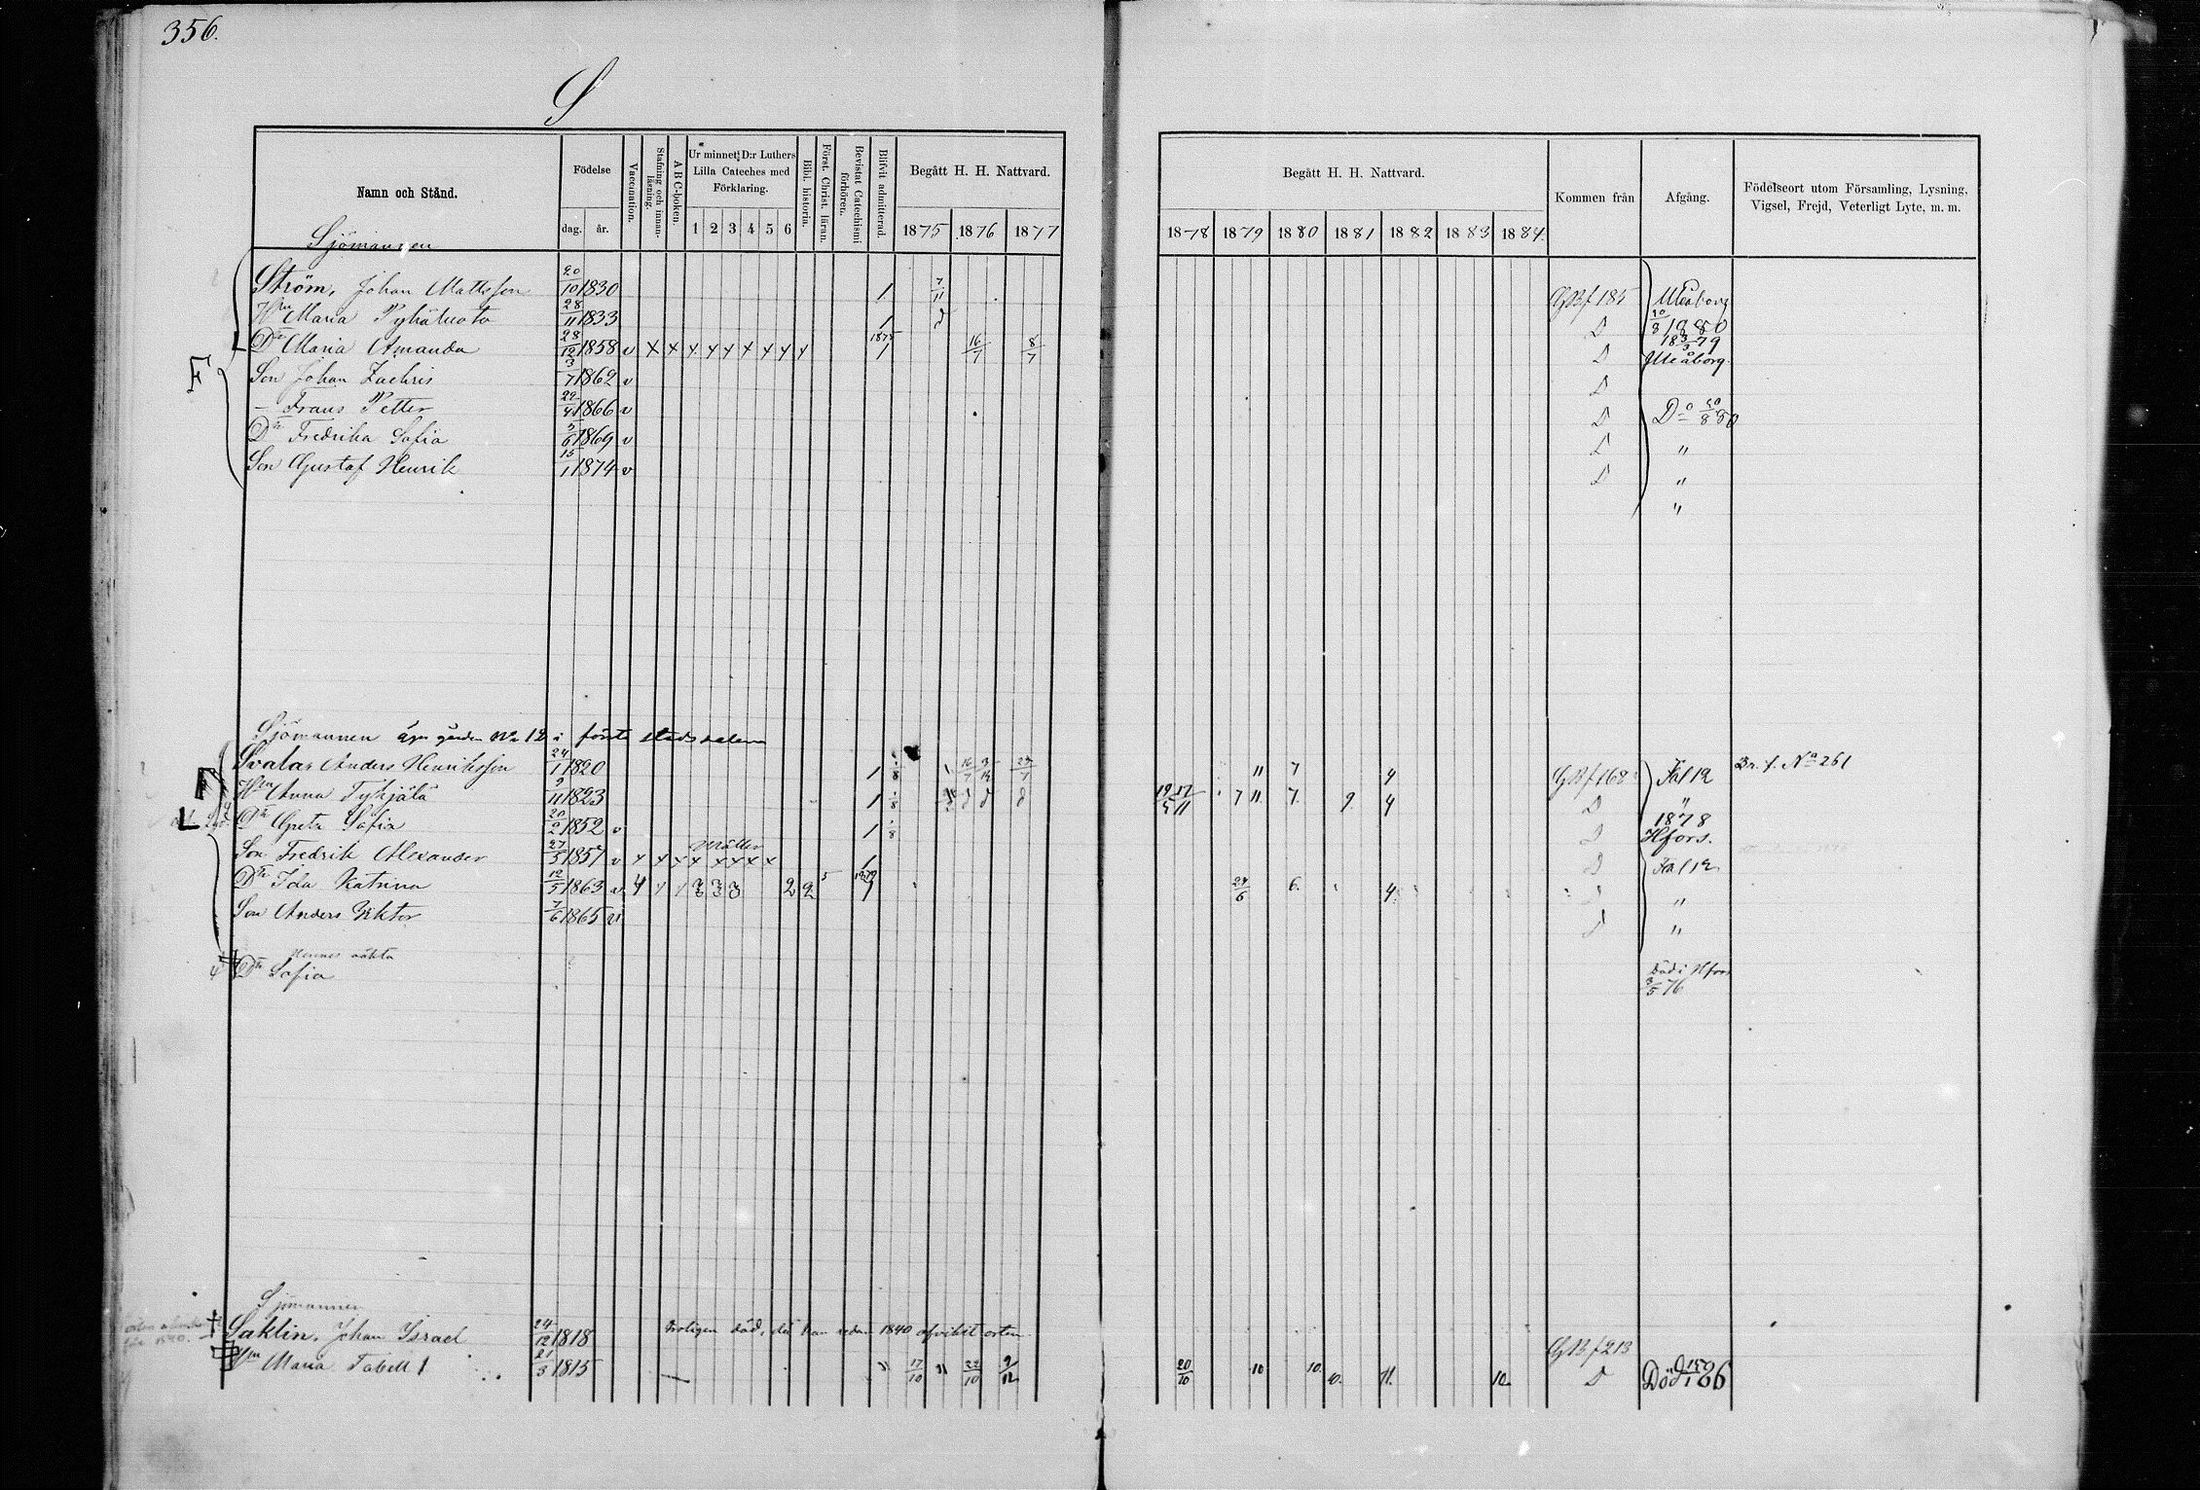 356.
S
Namn och Stånd.
Födelse
dag. år.
Vaccination.
Stafning och innanläsning.
A B C-boken.
Ur minnet: D:r Luthers Lilla Cateches med Förklaring.
1 2 3 4 5 6
Bibl. historia.
Först. Christ. läran.
Bevistat Catechismi förhören.
Blifvit admitterad.
Begått H. H. Nattvard.
1875 1876 1877
Begått H. H. Nattvard.
1878 1879 1880 1881 1882 1883 1884
Kommen från
Afgång.
Födelseort utom Församling, Lysning, Vigsel, Frejd, Veterligt Lyte, m. m.
Sjömannen
Ström, Johan Mattsson 20/10 1830 1 7/11 GBf 185 Uleåborg
Hu Maria Pyhäluoto 28/11 1833 1 D 10/8 1880
Dr Maria Amanda 28/12 1858 v x x x x x x x x x 1875 1 16/7 8/7 D 18 3/3 79 Uleåborg
F
Son Johan Zachris 3/7 1862 v D
— Frans Petter 29/4 1866 v D Do 10/8 80
Dr Fredrika Sofia 3/6 1869 v D "
Son Gustaf Henrik 15/1 1874 v D "
"
Sjömannen äger gården No 12 i första stadsdelen
Svala, Anders Henriksson 24/1 1820 1 11 7 4 GBf 168 Fal 12 Br. f. No 261
Hu Anna Tyhjälä 9/11 1823 1 19/5 17/11 7 11. 7. 9. 4 D "
L Dr Greta Sofia 20/2 1852 v 1 D 1878 Hfors.
Son Fredrik Alexander 27/5 1857 v x x x x x x x x 1 D Fal 12
Dr Ida Katrina 12/5 1863 v 4 3 3 3 2 2 5 1879 1 24/6 6. 4. D "
Son Anders Viktor 7/6 1865 v D "
Hennes oäkta
Dr Sofia Död i Hfors 3/5 76
Sjömannen
Saklin, Johan Israel 24/12 1818 Troligen död, då han redan 1840 afvikit orten GBf 213
Hu Maria Tabell 1 21/3 1815 17/10 22/10 9/12 20/10 10 10. 10. 11. 10. D Död